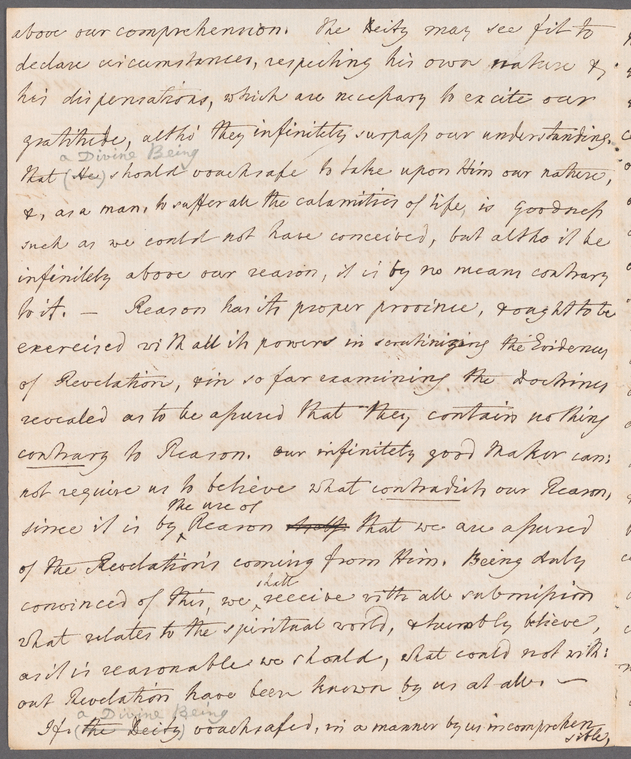 above our comprehension. The Deity may see fit to
declare circumstances, respecting his own nature &
his dispensations, which are necessary to excite our
gratitude, altho' they infinitely surpass our understanding.
a Divine Being
that (He) should vouchsafe to take upon Him our nature,
&, as a man, to suffer all the calamities of life, is goodness
such as we could not have conceived, but altho it be
infinitely above our reason, it is by no means contrary
to it. — Reason has its proper province, & ought to be
exercised with all its powers in scrutinizing the Evidences
of Revelation, & in so far examining the Doctrines
revealed as to be assured that they contain nothing
contrary to Reason. Our infinitely good Maker can:
not require us to believe what contradicts our Reason,
the use of
since it is by Reason itself that we are assured
of the Revelation's coming from Him. Being duly
shall
convinced of this, we receive with all submission
what relates to the spiritual world, & humbly believe,
as it is reasonable we should, what could not with:
out Revelation have been known by us at all. —
a Divine Being
If (the Deity) vouchsafed, in a manner by us incomprehen
sible,